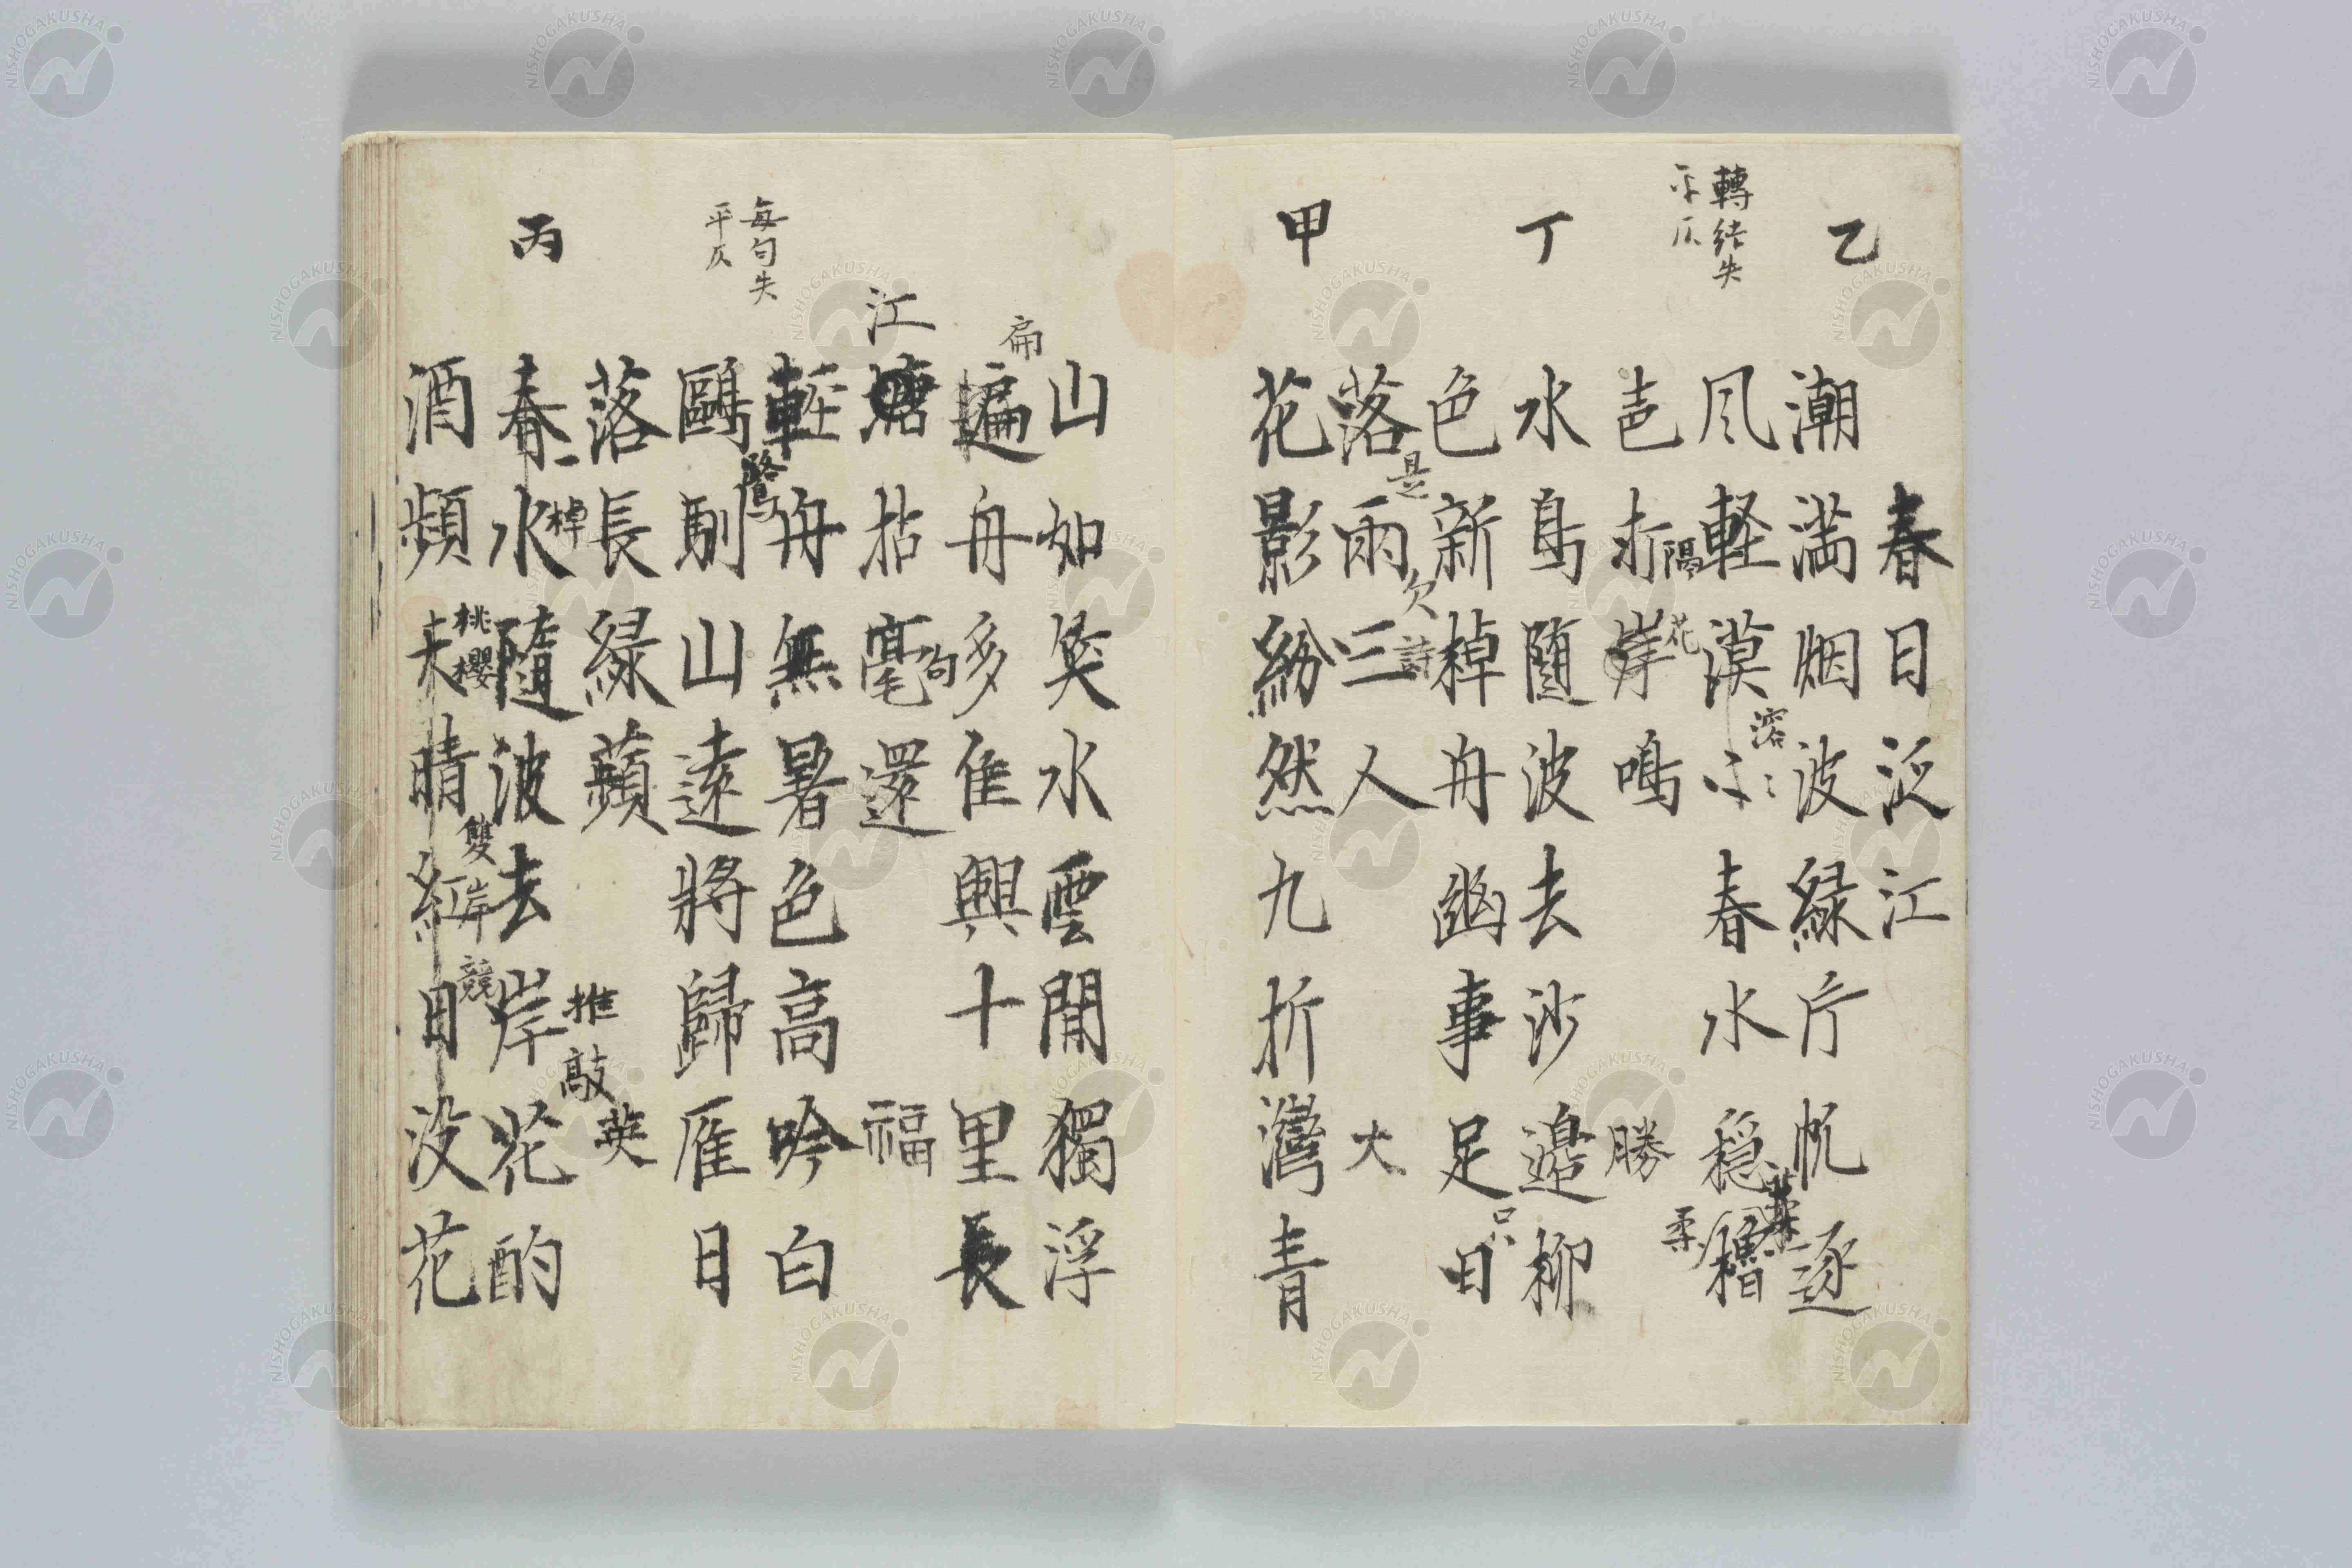 春日泛江
乙
潮満烟波緑片帆逐
風軽漠〻春水穏櫓
溶〻
隔花
柔
轉結失
平仄
岸鳴
勝
丁
水鳥随波去沙邉柳
色新棹舟幽事足日
只
落雨三人
大
是欠詩
甲
花影紛然九折灣青
山如笑水雲間獨浮
遍舟多佳興十里長
扁
江
塘拈毫還
句
福
軽舟無暑色高吟白
鷺
毎句失
平仄
鷗馴山遠將歸雁日
落長緑蘋
英
丙
春水随波去岸花酌
一棹
推敲
酒頻来晴紅日没花
桃櫻雙岸競